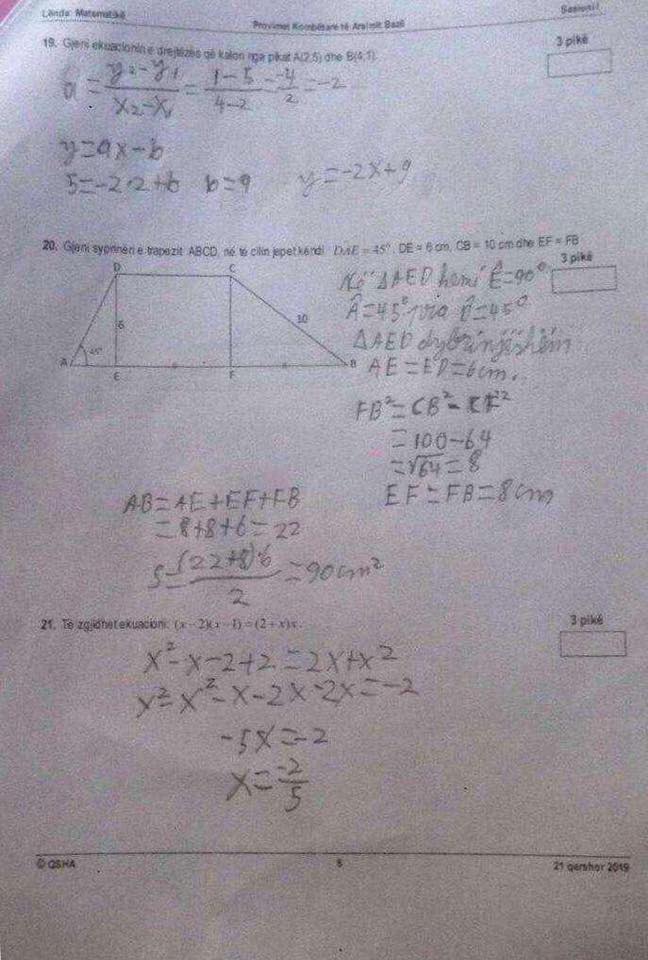 Lënda: Matematikë
Provimet Kombëtare të Arsimit Bazë
Sesioni I
19. Gjeni ekuacionin e drejtëzës që kalon nga pikat A(2,5) dhe B(4,1).
3 pikë
a = y2-y1/x2-x1 = 1-5/4-2 = -4/2 = -2
y=ax-b
5=-2·2+b b=9 y=-2x+9
20. Gjeni sipërinën e trapezit ABCD, në të cilin jepet këndi DAE = 45°, DE = 6 cm, CB = 10 cm dhe EF = FB
3 pikë
D C
6
10
A 45° E F B
Në ΔAED kemi Ê=90°
Â=45° D̂=45°
ΔAED dybrinjëshëm
AE=ED=6cm.
FB²=CB²-CF²
=100-64
=√64=8
EF=FB=8cm
AB=AE+EF+FB
=8+8+6=22
S=(22+8)·6/2=90cm²
21. Të zgjidhet ekuacioni: (x-2)(x-1)=(2+x)x.
3 pikë
x²-x-2+2=2x+x²
x²-x²-x-2x-2x=-2
-5x=-2
x=-2/5
© QSHA
6
21 qershor 2019